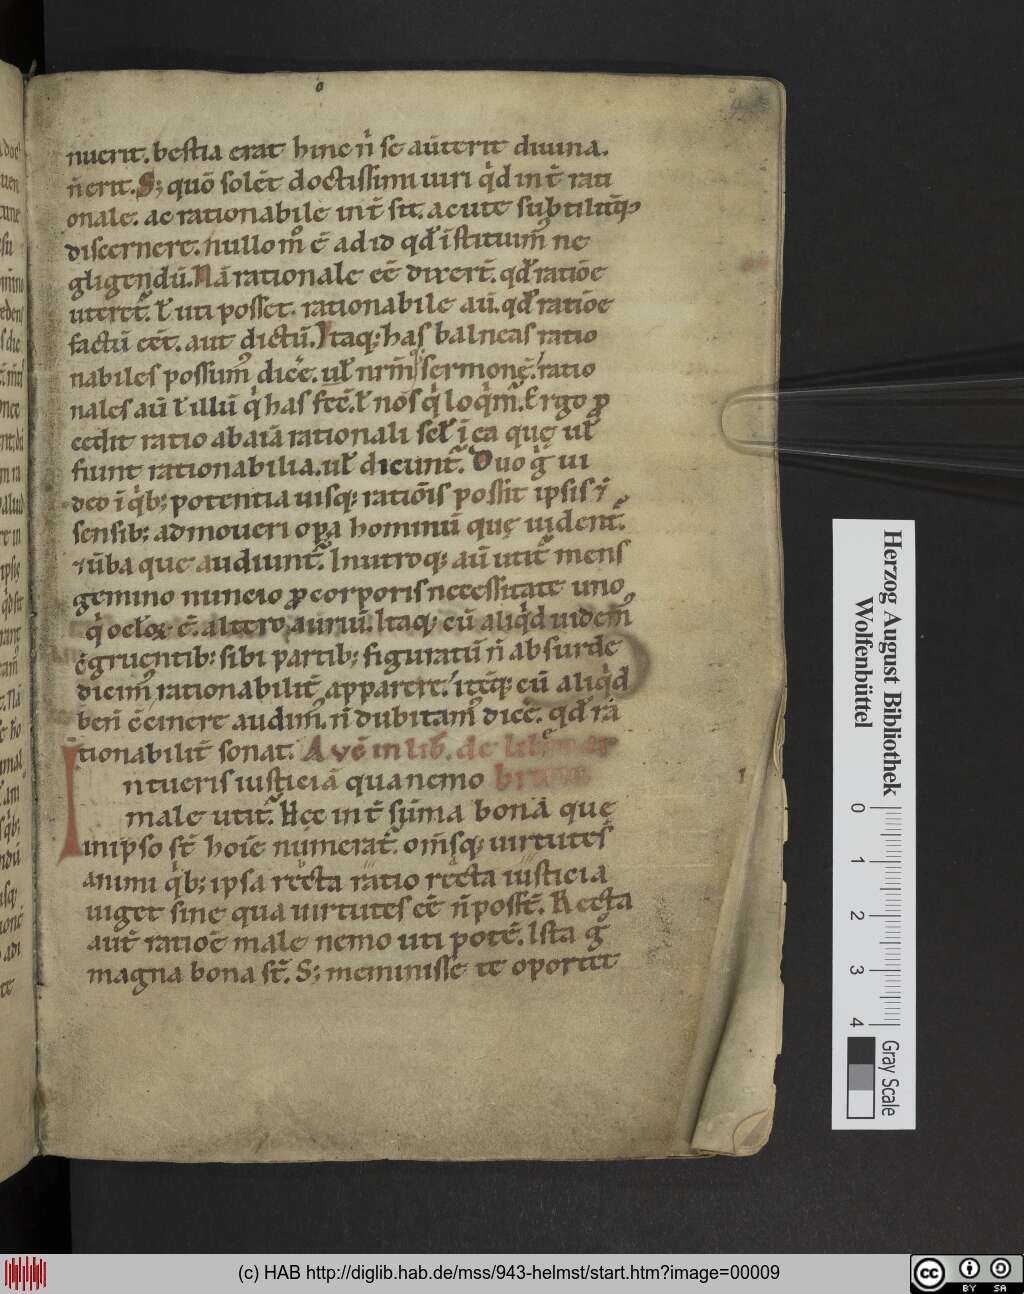 nuerit. bestia erat hinc n̄ se aūterit diuina.
n̄erit. S; quō solēt doctissimi uiri q̇d int̄ rati
onale. ac rationabile int̄ sit. acute subtilit̄q;
discernere. nullo m̊ ē ad id qd̄ īstituim̄ ne
gligendū. Nā rationale eē dixert̄. qd̄ ratiōe
uteret̄. ł uti posset. rationabile aū. qd̄ ratiōe
factū eēt. aut dictū. Itaq; has balneas ratio
nabiles possum̄ dicē. uł nrm̄ sermonē. ratio
nales aū ł illū q̇ has fcē. ł nos q̇ loq̇m̄. Ergo ꝓ
cedit ratio ab aīa rationali scł ī ea quę uł
fiunt rationabilia. uł dicunt̄. Duo ġ ui
deo ī q̇b; potentia uisq; ratiōis possit ipsis ⁊
sensib; admoueri opa hominū quę uident̄.
⁊ ūba que audiunt̄. In utroq; aū utit̄ mens
gemino nuncio ꝓ corporis necessitate uno
q̇ ocłoꝝ ē. altero auriū. Itaq; cū aliq̇d uidem̄
c̄gruentib; sibi partib; figuratū n̄ absurde
dicim̄ rationabilit̄ apparere. itēq; cū aliq̇d
ben̄ c̄cinere audim̄. n̄ dubitam̄ dicē. qd̄ ra
tionabilit̄ sonat. Avḡ in lib. de libero ar
Intueris iusticiā qua nemo
male utit̄. Hec int̄ sūma bona quę
in ipso st̄ hoīe numerat̄. om̄sq; uirtutes
animi q̇b; ipsa recta ratio recta iusticia
uiget sine qua uirtutes eē n̄ posst̄. Recta
aut̄ ratiōe male nemo uti potē. Ista ġ
magna bona st̄. S; meminisse te oportet
Herzog August Bibliothek
Wolfenbüttel
0 1 2 3 4
Gray Scale
(c) HAB http://diglib.hab.de/mss/943-helmst/start.htm?image=00009
cc BY SA